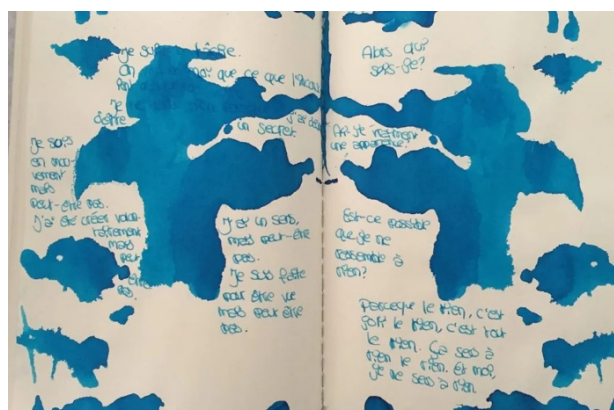 Je suis
On que ce que
Je
d'être
un secret
Je suis
en mou-
vement
mais
peut-être pas.
J'ai été créer volon-
tairement
mais
peut
être
pas.
J'ai un sens,
mais peut-être
pas.
Je suis faite
pour être vue
mais peut être
pas.
Alors qui
suis-je?
Ai-je vraiment
une apparence?
Est-ce possible
que je ne
ressemble à
rien?
Parceque le rien, c'est
joli le rien, c'est tout
le rien. Ça sers à
rien le rien. Et moi,
je ne sers à rien